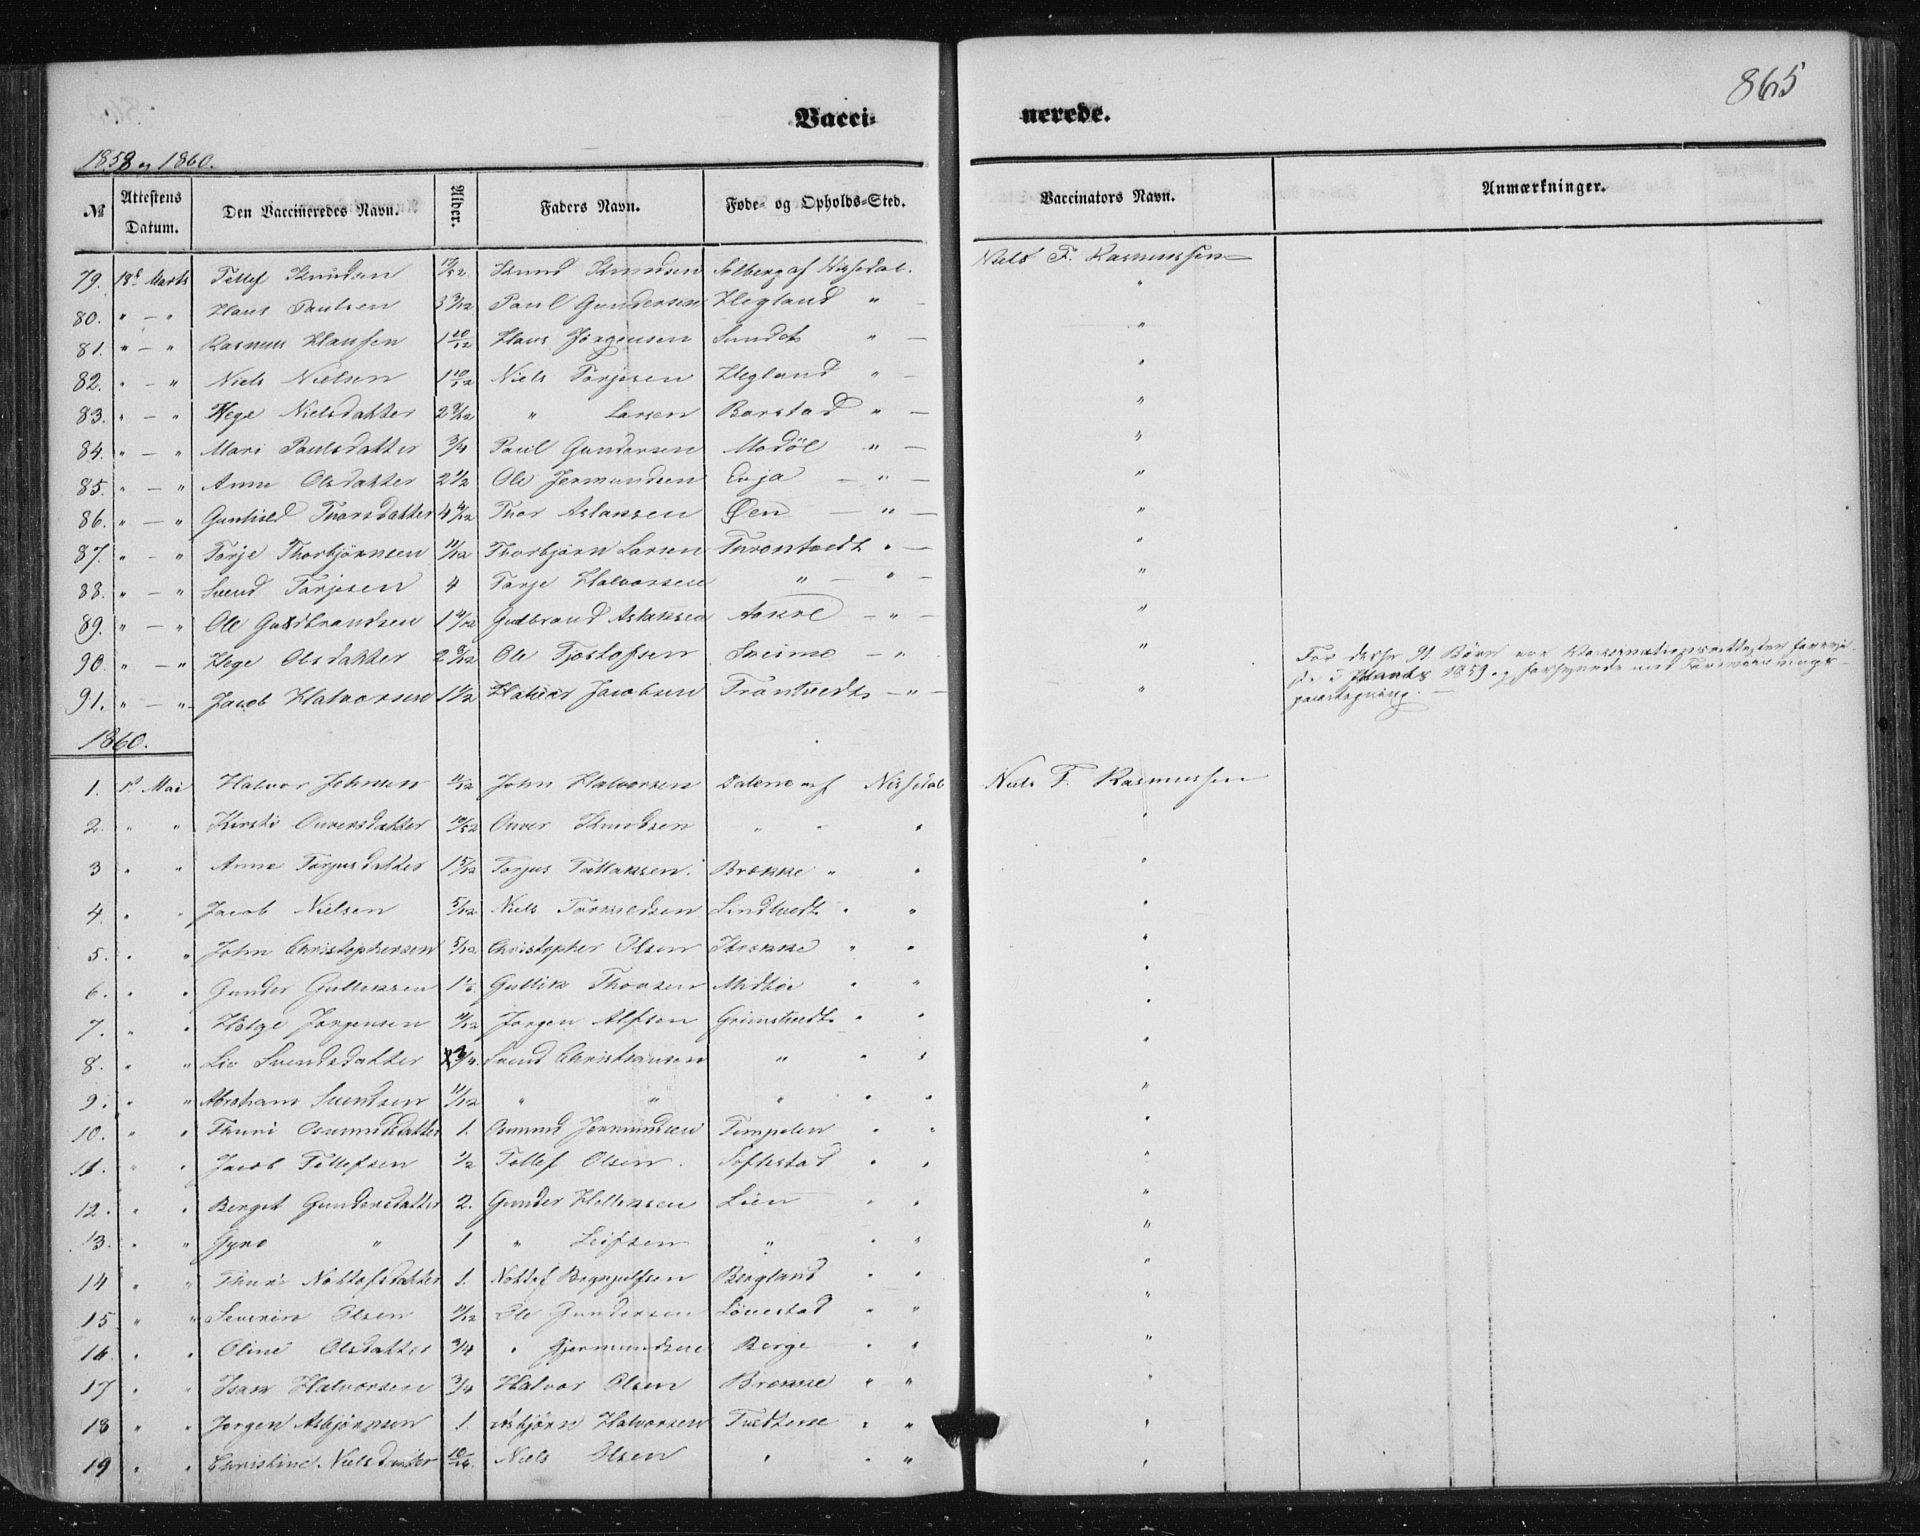 865
Vacci- nerede.
1858 og 1860.
№ Attestens Datum. Den Vaccineredes Navn. Alder. Faders Navn. Føde- og Opholds-Sted. Vaccinators Navn. Anmærkninger.
79. 18d Marts Tellef Knudsen 10/12 Knud Knudsen Solberg af Nissedal. Niels F. Rasmussen
80. " — " Hans Paulsen 3 3/12 Paul Gundersen Hegland " — "
81. " — " Rasmus Hansen 1 10/12 Hans Jørgensen Sundet " — "
82. " — " Niels Nielsen 1 10/12 Niels Torjesen Hegland " — "
83. " — " Hege Nielsdatter 2 9/12 " Larsen Barstad " — "
84. " — " Mari Paulsdatter 3/4 Paul Gundersen Modøl " — "
85. " — " Anne Olsdatter 2 1/2 Ole Jermundsen Euja — " — "
86. " — " Gunhild Thorsdatter 4 4/12 Thor Aslaksen Øen — " — "
87. " — " Torje Thorbjørnsen 11/12 Thorbjørn Larsen Trontvedt " — "
88. " — " Svend Torjesen 4 Torje Halvorsen " — " — "
89. " — " Ole Guldbrandsen 1 4/12 Gudbrand Aslaksen Aakre — " — "
90. " — " Hege Olsdatter 2 9/12 Ole Tjostolfsen Sveime — " "
91. " — " Jacob Halvorsen 1 1/2 Halvor Jacobsen Trontvedt — " — "
For disse 91 Børn var Vaccinationsattester forevi-
ste i Marts 1859 og forsynede med Foreviisnings-
paategning. —
1860.
1. 1st Mai Halvor Johnsen 11/12 John Halvorsen Dalene af Nissedal Niels F. Rasmussen
2. " " Kirsti Onversdatter 10/12 Onver Knudsen " " " "
3 " " Anne Torjusdatter 1 5/12 Torjus Tallaksen. Brokke " " "
4 " " Jacob Nielsen 5/12 Niels Torkildsen Lindtvedt " " "
5. " " John Christophersen 5/12 Christopher Olsen Brokke " " "
6. " " Gunder Gulleksen 1 Gullik Thorsen Midbøe " " "
7. " " Helge Jørgensen 11/12 Jørgen Alfsen Grimstvedt " " "
8. " " Liv Svendsdatter 3/4. Svend Christiansen " " " "
9. " " Abraham Svendsen 11/12 " " " " " "
10. " " Thuri Osmundsdatter 1. Osmund Jermundsen Tempelen " " "
11. " " Jacob Tellefsen 1/2 Tellef Olsen. Søftestad " " "
12. " " Berget Gundersdatter 2. Gunder Helleksen Lien " " "
13. " " Gyro " 1 " Leifsen " " " "
14 " " Thuri Nottolfsdatter 1. Nottof Brynjulfsen Bergland " " "
15 " " Severin Olsen 11/12 Ole Gundersen Løvestad " " "
16. " " Oline Olsdatter 3/4 " Gjermundsen Berge " " "
17 " " Isak Halvorsen 3/4 Halvor Olsen Brokke " " "
18 " " Jørgen Asbjørnsen 1. Asbjørn Halvorsen Tvedtene " " "
19 " " Christine Nielsdatter Niels Olsen " " " "